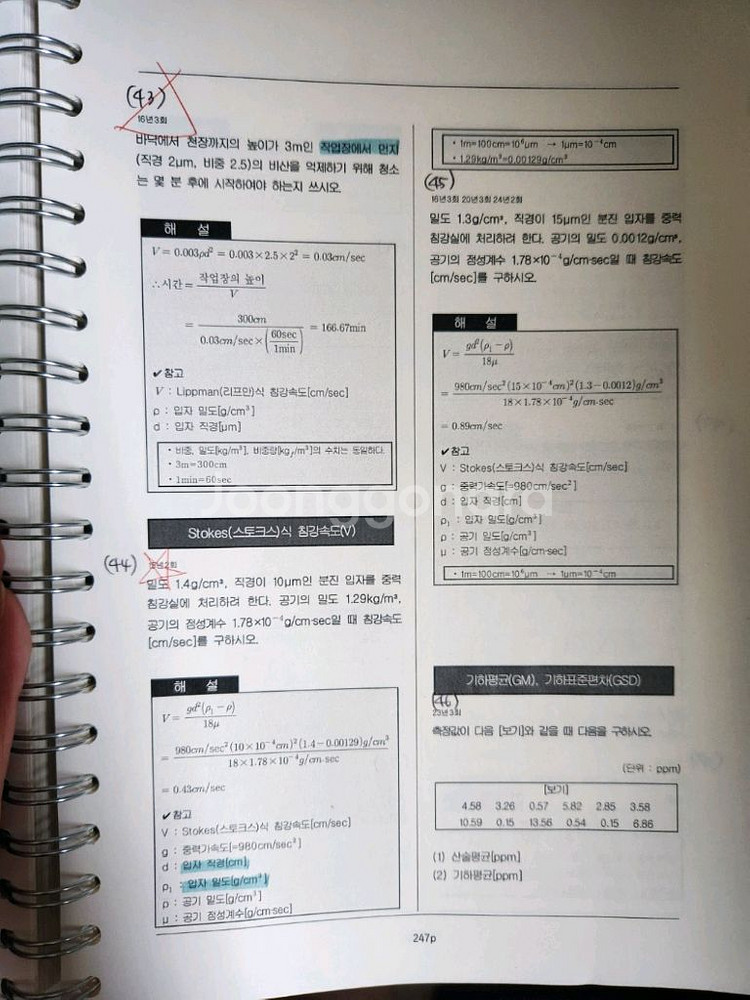 (43)
16년3회
바닥에서 천장까지의 높이가 3m인 작업장에서 먼지
(직경 2μm, 비중 2.5)의 비산을 억제하기 위해 청소
는 몇 분 후에 시작하여야 하는지 쓰시오.
해 설
V = 0.003ρd² = 0.003×2.5×2² = 0.03cm/sec
∴시간 = 작업장의 높이 / V
= 300cm / 0.03cm/sec×(60sec/1min) = 166.67min
✔참고
V : Lippman(리프만)식 침강속도[cm/sec]
ρ : 입자 밀도[g/cm³]
d : 입자 직경[μm]
• 비중, 밀도[kg/m³], 비중량[kgf/m³]의 수치는 동일하다.
• 3m=300cm
• 1min=60sec
Stokes(스토크스)식 침강속도(V)
(44)
년2회
밀도 1.4g/cm³, 직경이 10μm인 분진 입자를 중력
침강실에 처리하려 한다. 공기의 밀도 1.29kg/m³,
공기의 점성계수 1.78×10⁻⁴g/cm·sec일 때 침강속도
[cm/sec]를 구하시오.
해 설
V = gd²(ρ₁-ρ) / 18μ
= 980cm/sec²(10×10⁻⁴cm)²(1.4-0.00129)g/cm³ / 18×1.78×10⁻⁴g/cm·sec
= 0.43cm/sec
✔참고
V : Stokes(스토크스)식 침강속도[cm/sec]
g : 중력가속도[=980cm/sec²]
d : 입자 직경[cm]
ρ₁ : 입자 밀도[g/cm³]
ρ : 공기 밀도[g/cm³]
μ : 공기 점성계수[g/cm·sec]
• 1m=100cm=10⁶μm → 1μm=10⁻⁴cm
• 1.29kg/m³=0.00129g/cm³
(45)
16년3회 20년3회 24년2회
밀도 1.3g/cm³, 직경이 15μm인 분진 입자를 중력
침강실에 처리하려 한다. 공기의 밀도 0.0012g/cm³,
공기의 점성계수 1.78×10⁻⁴g/cm·sec일 때 침강속도
[cm/sec]를 구하시오.
해 설
V = gd²(ρ₁-ρ) / 18μ
= 980cm/sec²(15×10⁻⁴cm)²(1.3-0.0012)g/cm³ / 18×1.78×10⁻⁴g/cm·sec
= 0.89cm/sec
✔참고
V : Stokes(스토크스)식 침강속도[cm/sec]
g : 중력가속도[=980cm/sec²]
d : 입자 직경[cm]
ρ₁ : 입자 밀도[g/cm³]
ρ : 공기 밀도[g/cm³]
μ : 공기 점성계수[g/cm·sec]
• 1m=100cm=10⁶μm → 1μm=10⁻⁴cm
기하평균(GM), 기하표준편차(GSD)
(46)
23년3회
측정값이 다음 [보기]와 같을 때 다음을 구하시오.
(단위 : ppm)
[보기]
4.58 3.26 0.57 5.82 2.85 3.58
10.59 0.15 13.56 0.54 0.15 6.86
(1) 산술평균[ppm]
(2) 기하평균[ppm]
247p